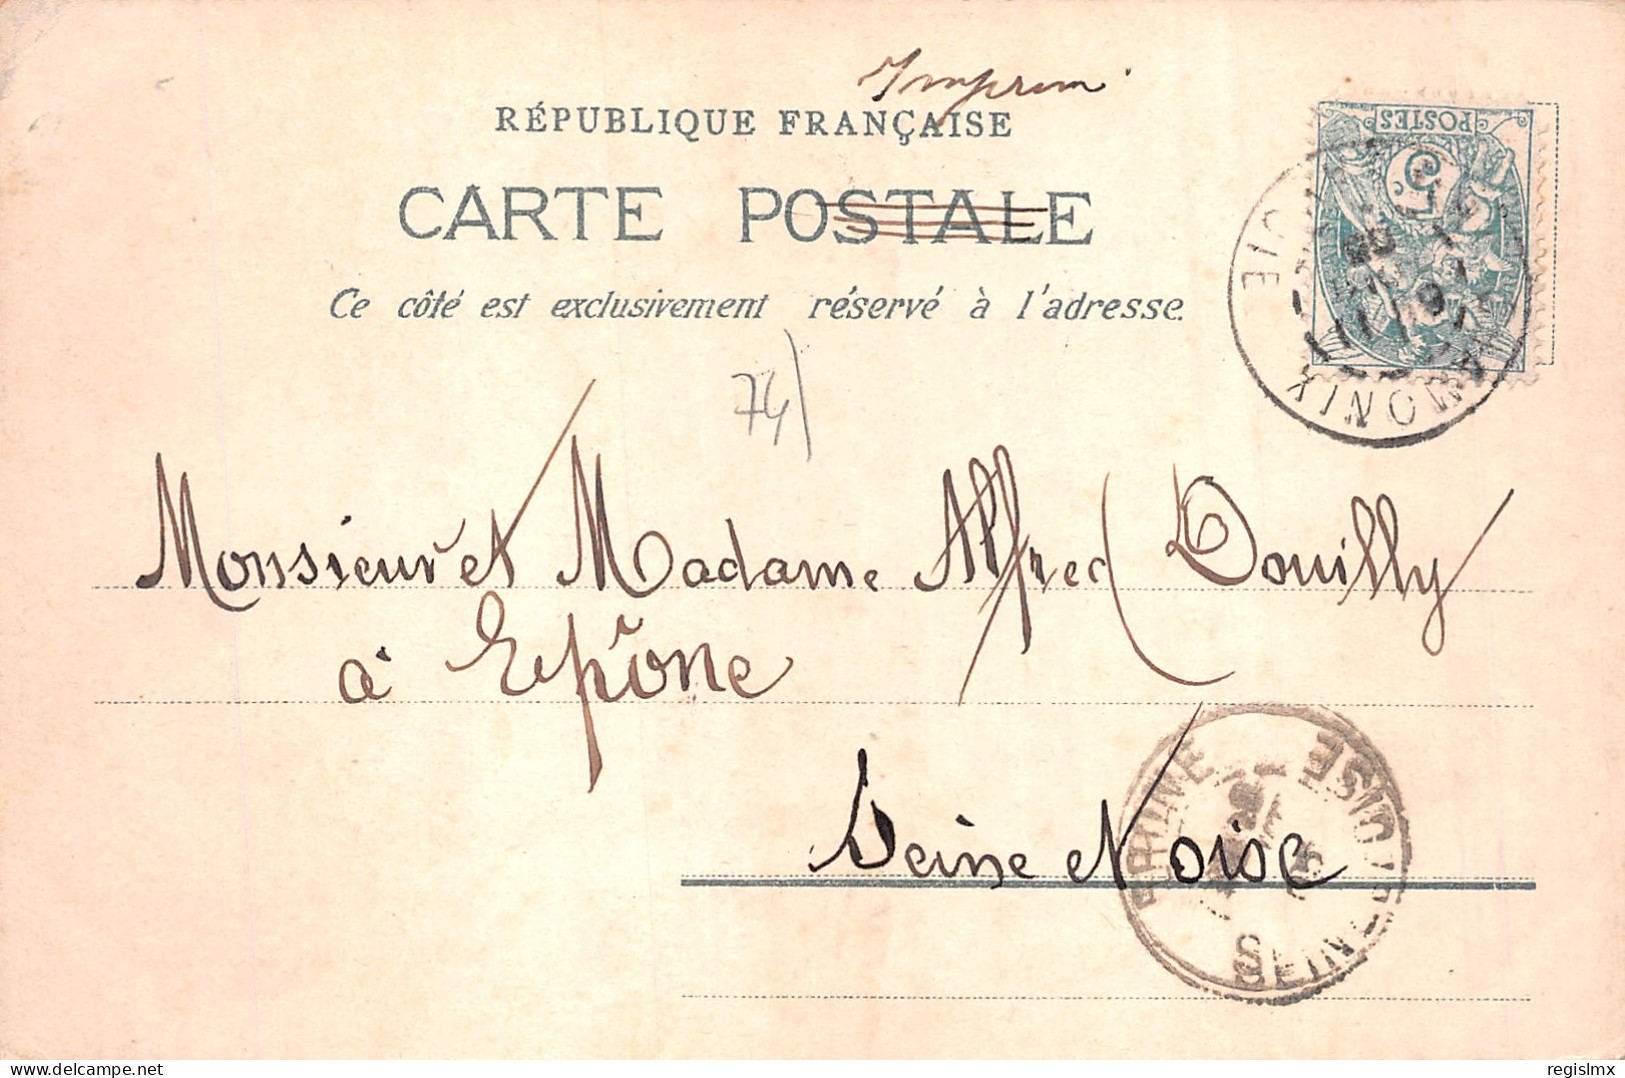 Imprim
RÉPUBLIQUE FRANÇAISE
CARTE POSTALE
Ce côté est exclusivement réservé à l'adresse.
POSTES
5
74
Monsieur et Madame Alfred Douilly
à Epône
Seine et Oise
delcampe.net
regislmx